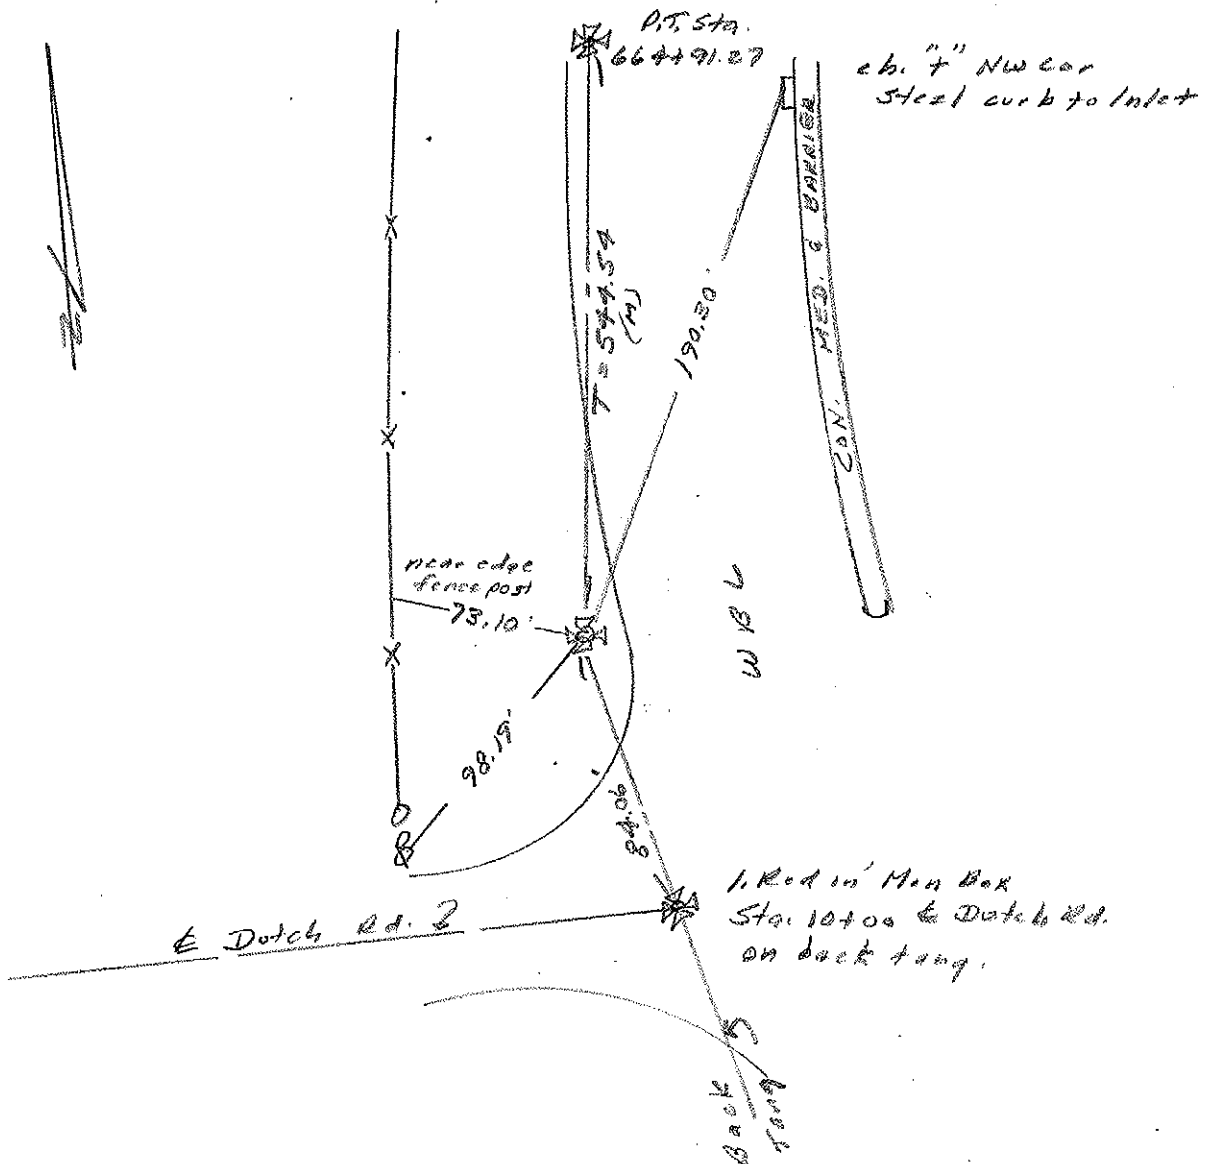 P.T. Sta.
664+91.27
ch. "+" NW cor
Steel curb to Inlet
CON. MED. & BARRIER
T = 544.54
(M)
190.30'
near edge
fence post
73.10'
W B L
98.19'
84.06
1. Rod in Mon Box
Sta. 10+00 ℄ Dutch Rd.
on back tang.
℄ Dutch Rd.
Back
Tang
N